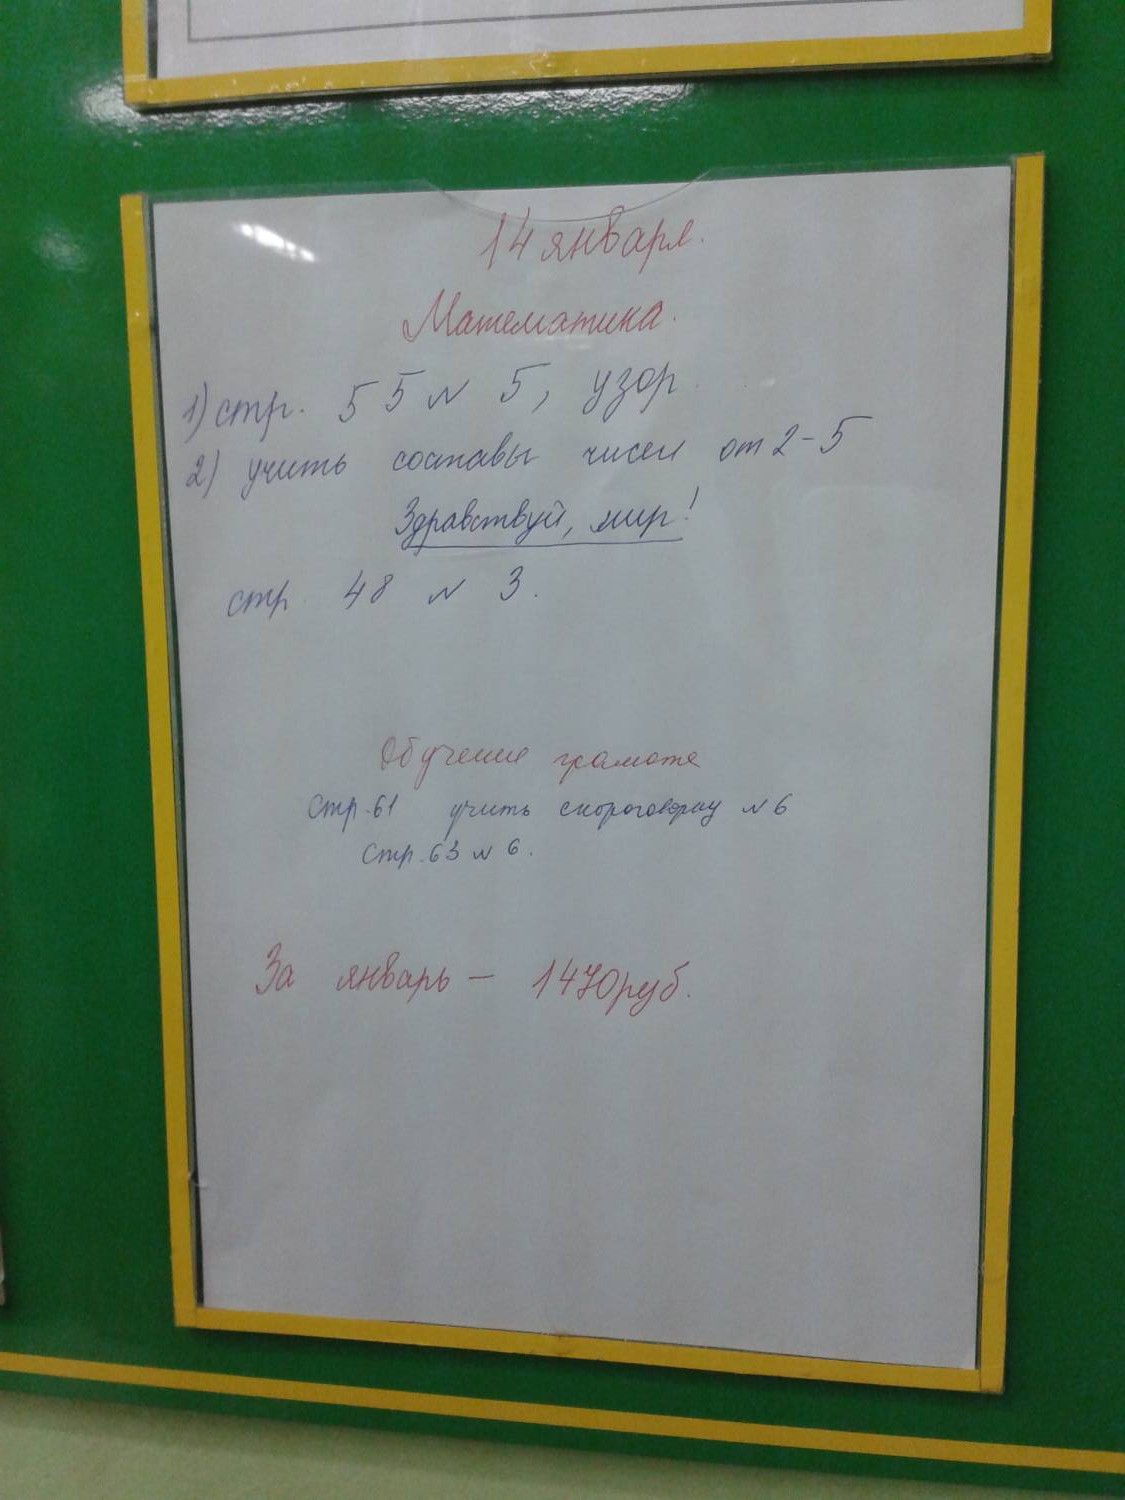 14 января.
Математика.
1) стр. 55 N 5, узор
2) учить составы чисел от 2-5
Здравствуй, мир!
стр. 48 N 3.
Обучение грамоте
Стр.61 учить скороговорку N 6
Стр.63 N 6.
За январь - 1470руб.